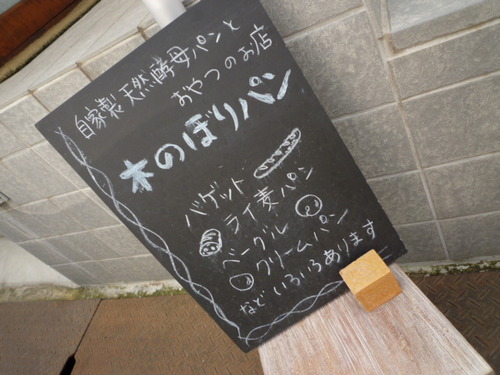 自家製天然酵母パンと
おやつのお店
木のぼりパン
バゲット
ライ麦パン
ベーグル
クリームパン
などいろいろあります